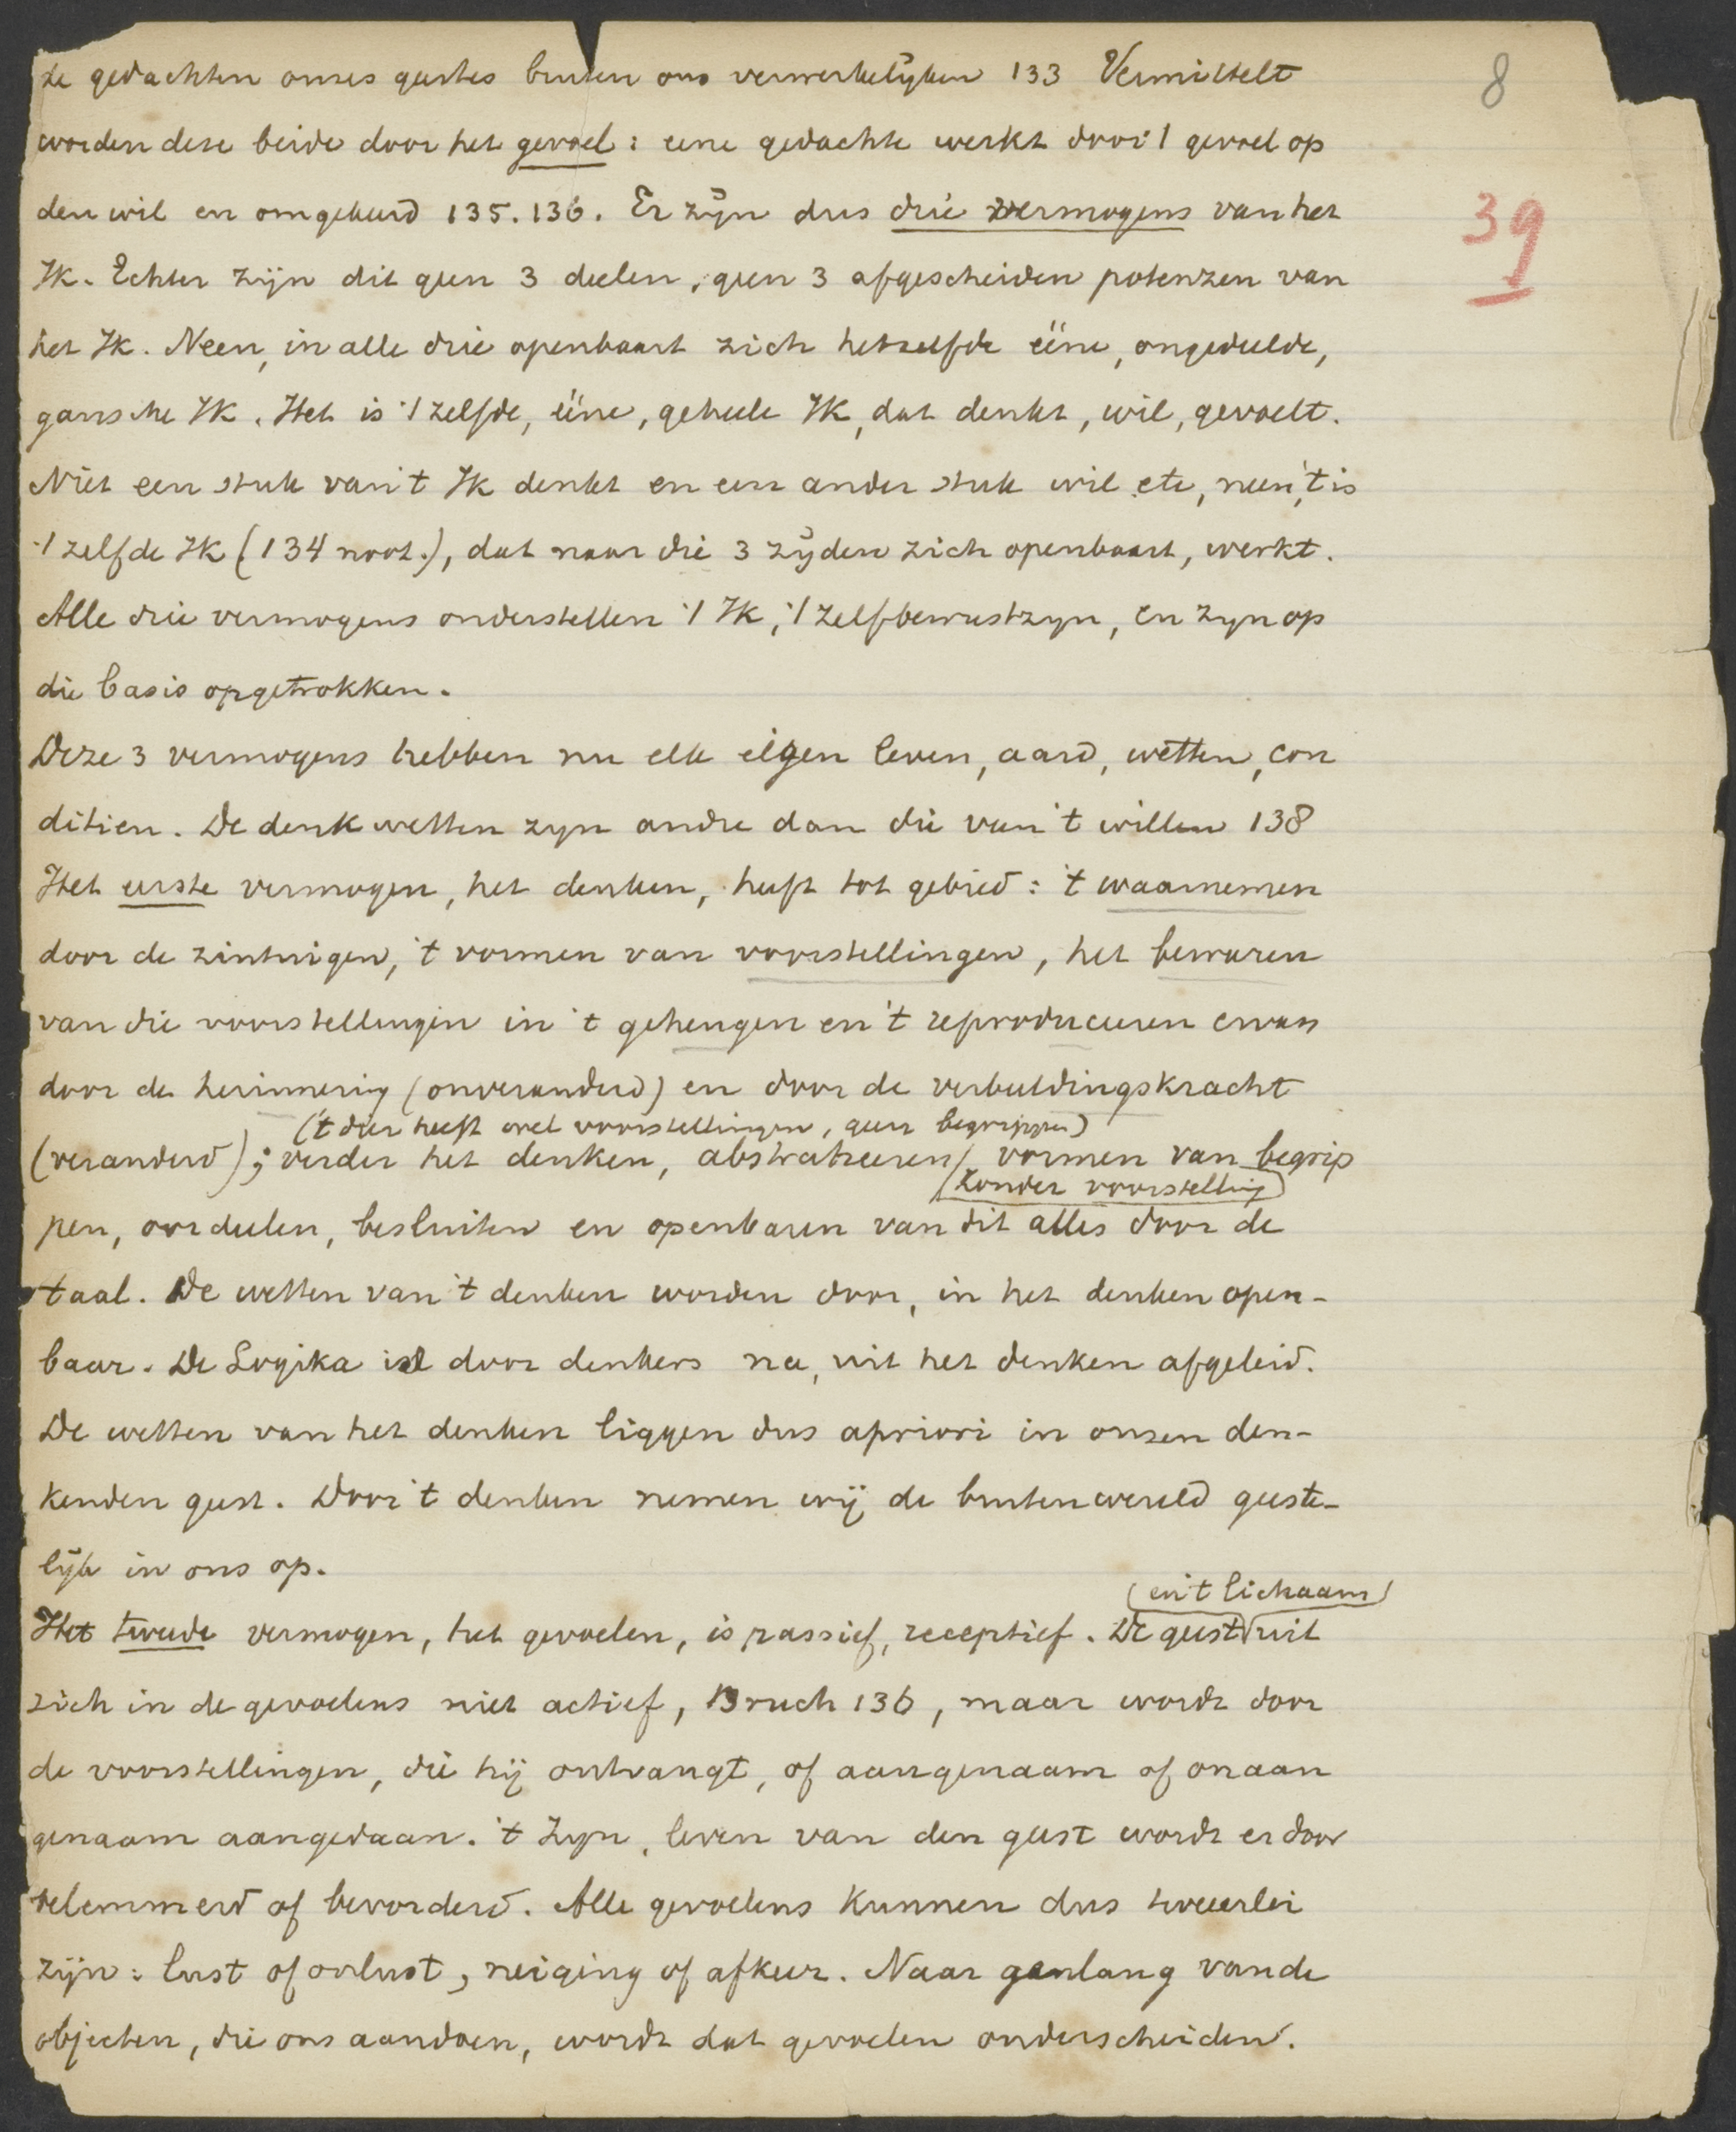 8
39
de gedachten onzes geestes buiten ons verwerkelijken 133 Vermittelt
worden deze beide door het gevoel: eene gedachte werkt door 't gevoel op
den wil en omgekeerd 135.136. Er zijn dus drie vermogens van het
Ik. Echter zijn dit geen 3 deelen, geen 3 afgescheiden potenzen van
het Ik. Neen, in alle drie openbaart zich hetzelfde ééne, ongedeelde,
gansche Ik. Het is 't zelfde, ééne, geheele Ik, dat denkt, wil, gevoelt.
Niet een stuk van 't Ik denkt en een ander stuk wil etc, neen, 't is
't zelfde Ik (134 noot.), dat naar die 3 zijden zich openbaart, werkt.
Alle drie vermogens onderstellen 't Ik, 't zelfbewustzyn, en zyn op
die basis opgetrokken.
Deze 3 vermogens hebben nu elk eigen leven, aard, wetten, con
ditien. De denkwetten zyn andre dan die van 't willen 138
Het eerste vermogen, het denken, heeft tot gebied: 't waarnemen
door de zintuigen, 't vormen van voorstellingen, het bewaren
van die voorstellingen in 't geheugen en 't reproduceeren ervan
door de herinnering (onveranderd) en door de verbeeldingskracht
('t dier heeft wel voorstellingen, geen begrippen)
(veranderd); verder het denken, abstraheeren, vormen van begrip
(zonder voorstelling)
pen, oordeelen, besluiten en openbaren van dit alles door de
taal. De wetten van 't denken worden door, in het denken open-
baar. De Logika is door denkers na, uit het denken afgeleid.
De wetten van het denken liggen dus apriori in onzen den-
kenden geest. Door 't denken nemen wij de buitenwereld geeste-
lijk in ons op.
(en 't lichaam)
Het tweede vermogen, het gevoelen, is passief, receptief. De geest uit
zich in de gevoelens niet actief, Bruch 136, maar wordt door
de voorstellingen, die hij ontvangt, of aangenaam of onaan
genaam aangedaan. 't Zyn, leven van den geest wordt er door
belemmerd of bevorderd. Alle gevoelens kunnen dus tweeerlei
zijn: lust of onlust, neiging of afkeur. Naar ganlang van de
objecten, die ons aandoen, wordt dat gevoelen onderscheiden.